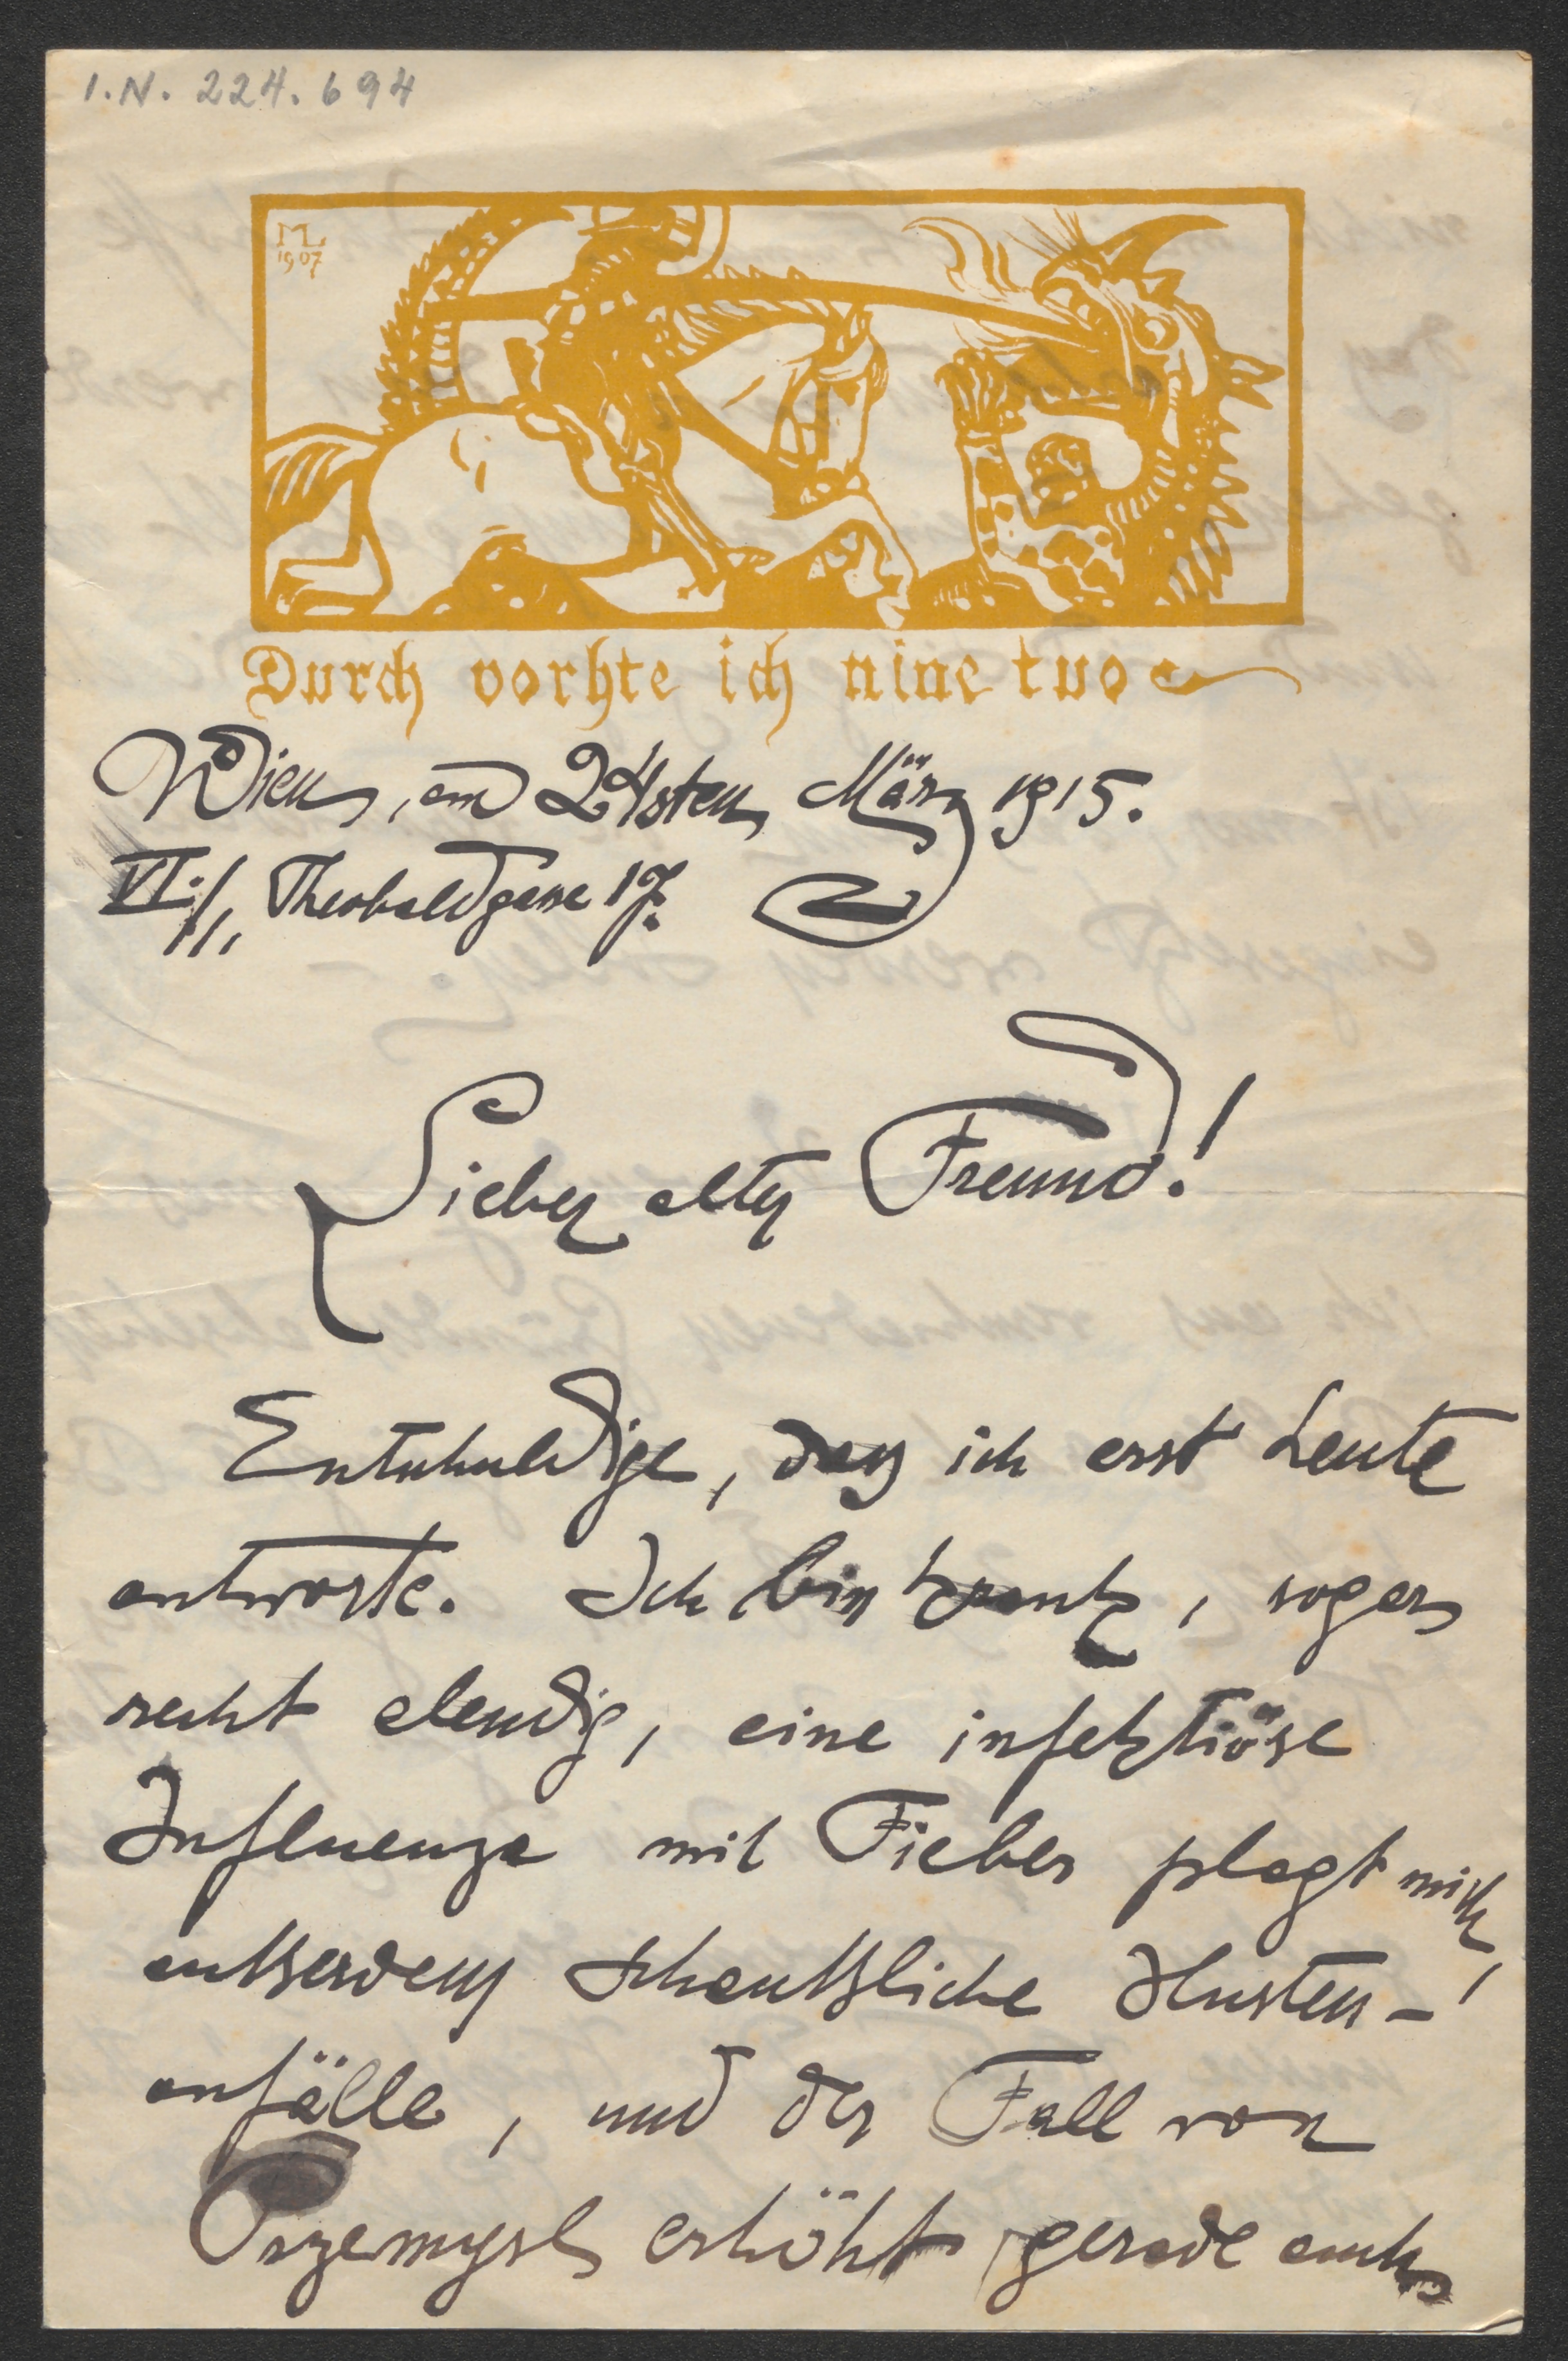 I.N. 224.694
ML
1907
Durch vorhte ich nine tuo
Wien, am 24sten März 1915.
VI./1, Theobaldgasse 17.
Lieber alter Freund!
Entschuldige, dass ich erst heute
antworte. Ich bin krank, sogar
recht elendig, eine infektiöse
Influenza mit Fieber plagt mich,
außerdem scheußliche Husten-
anfälle, und der Fall von
Przemysl erhöht gerade auch